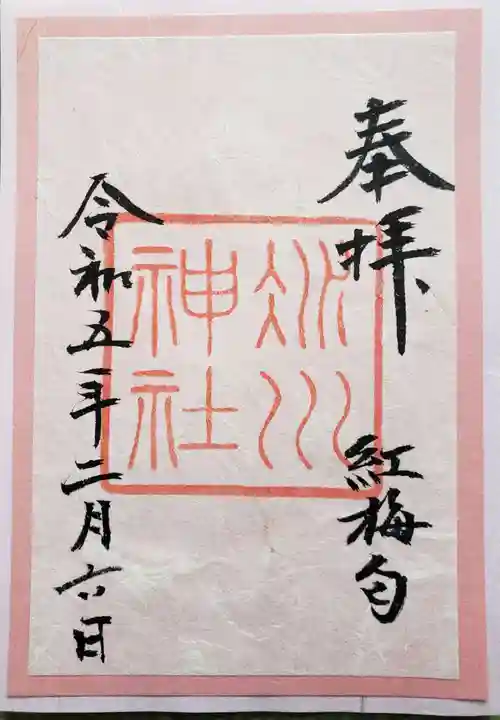 奉拝
紅梅匂
冰川
神社
令和五年二月六日